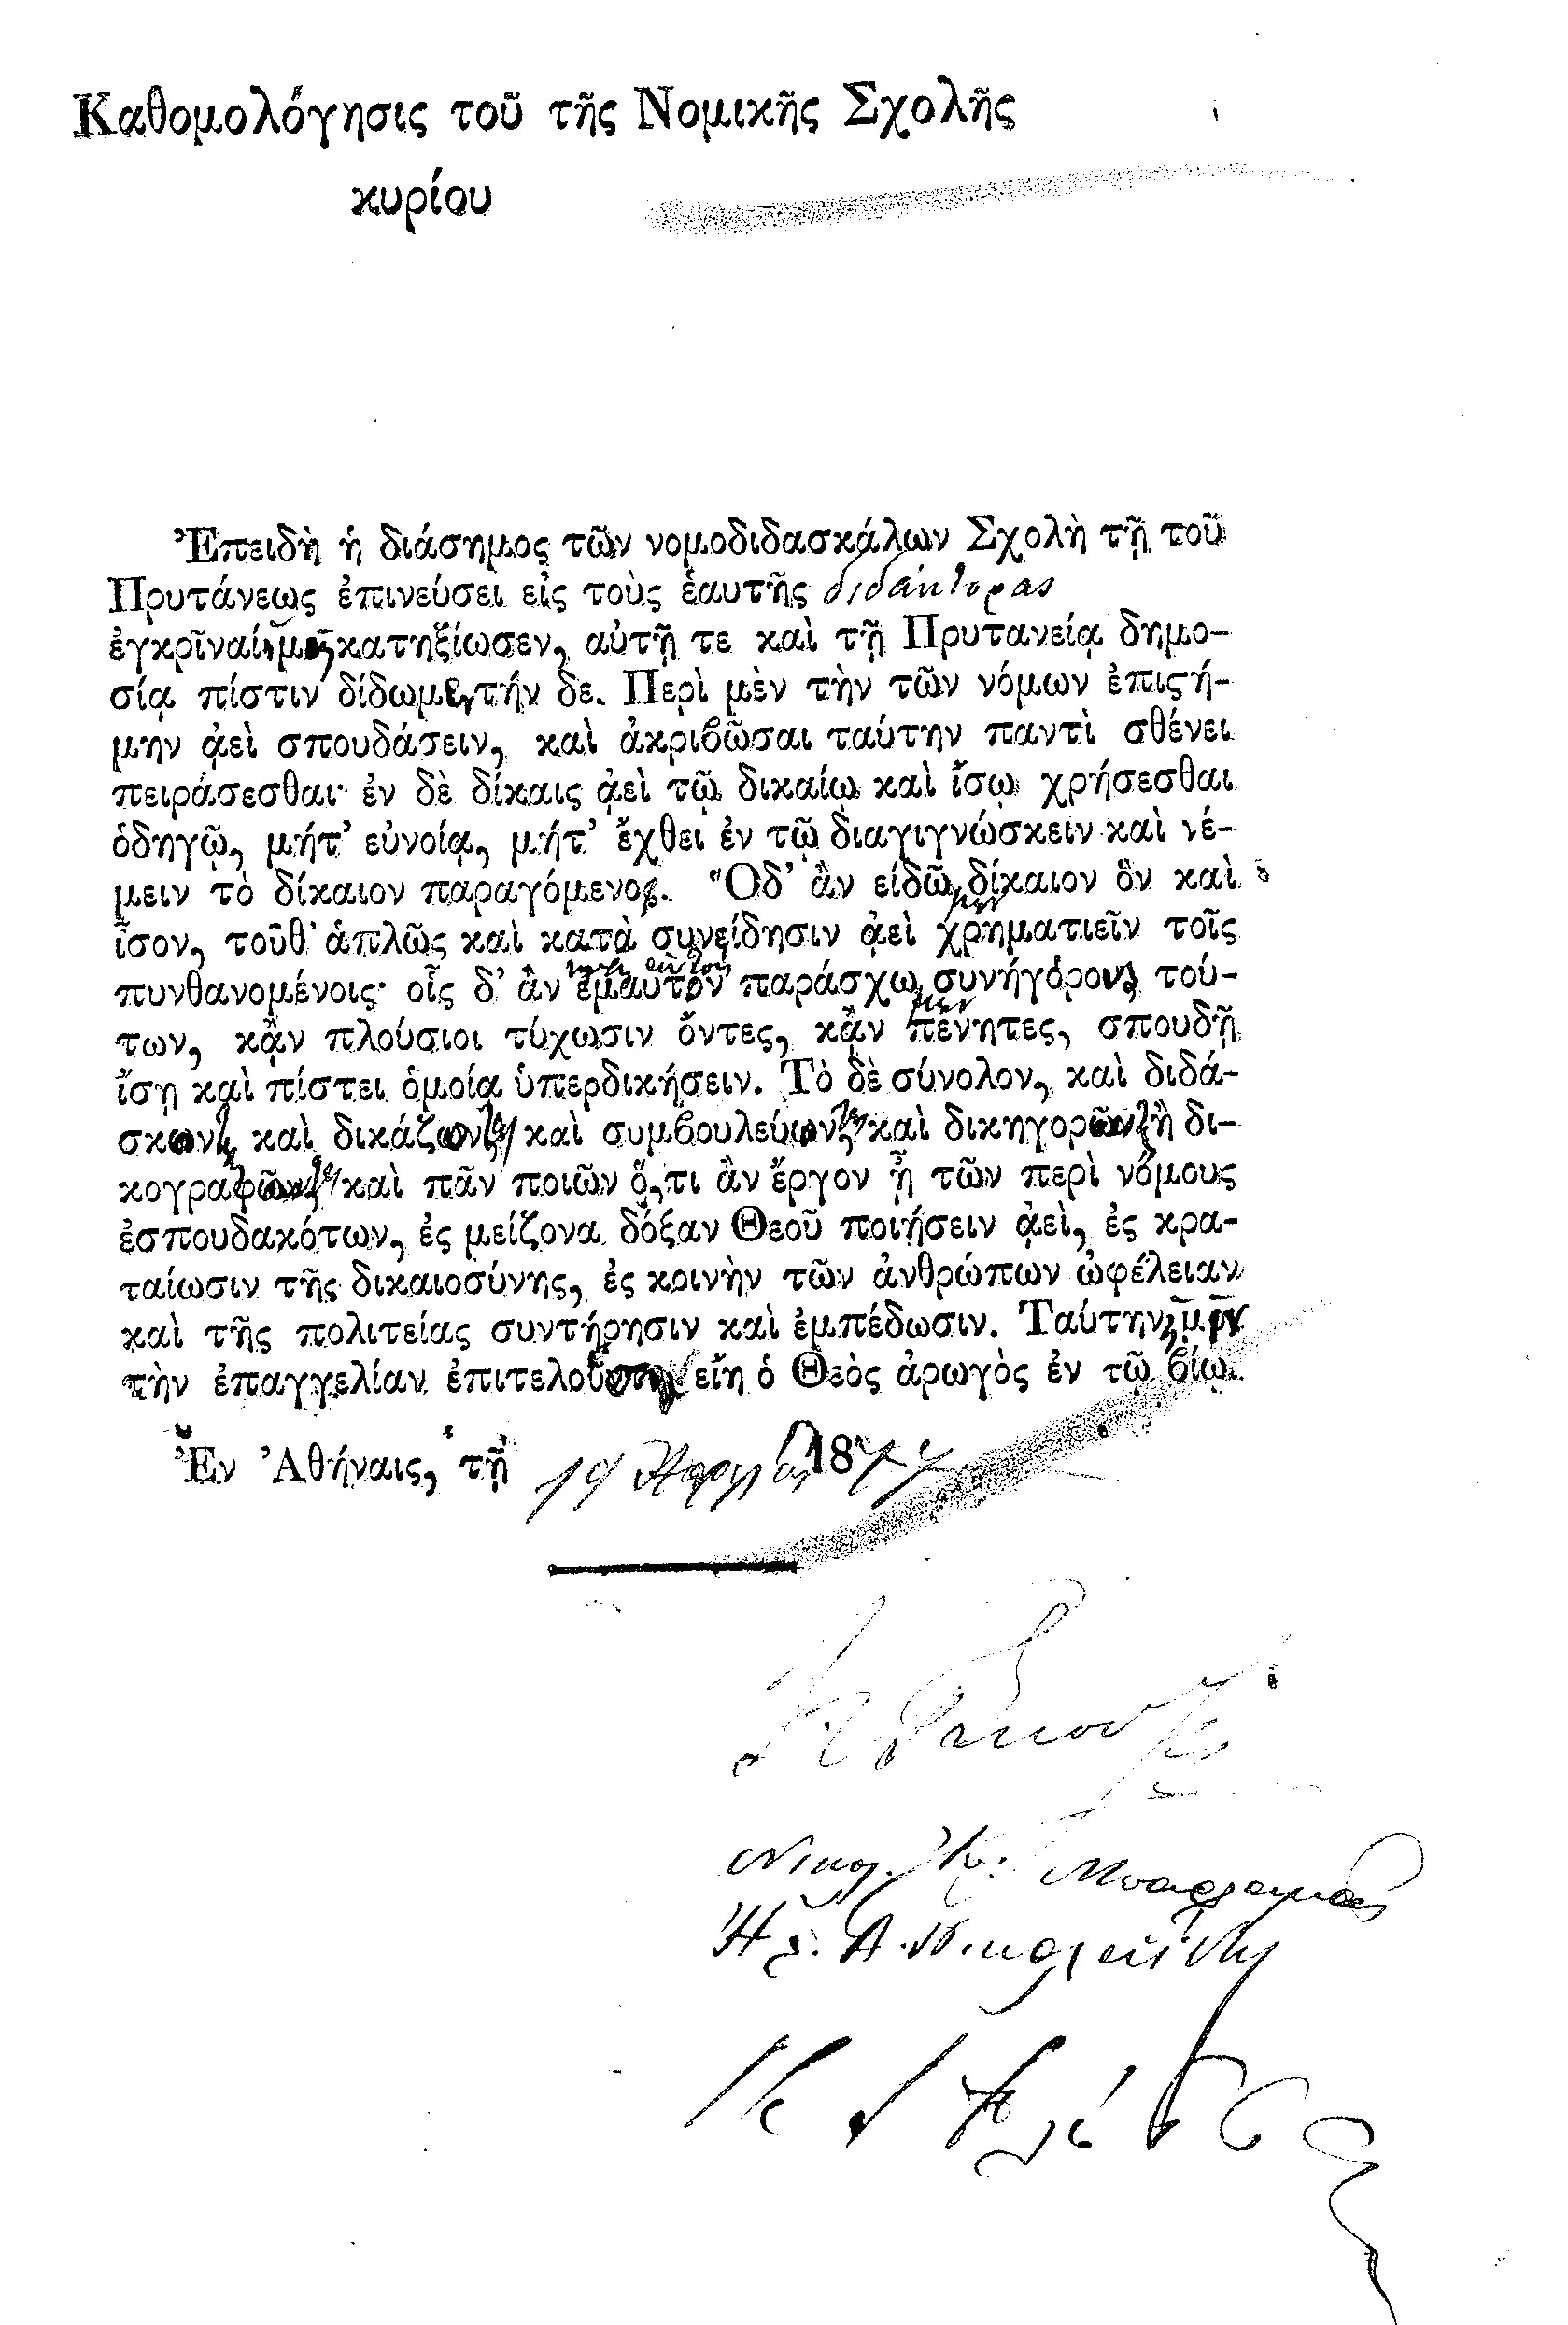 Καθομολόγησις τοῦ τῆς Νομικῆς Σχολῆς
κυρίου
Ἐπειδὴ ἡ διάσημος τῶν νομοδιδασκάλων Σχολὴ τῇ τοῦ
Πρυτάνεως ἐπινεύσει εἰς τοὺς ἑαυτῆς διδάκτορας
ἐγκρῖναί κατηξίωσεν, αὐτῇ τε καὶ τῇ Πρυτανείᾳ δημο-
σίᾳ πίστιν δίδωμεν τήν δε. Περὶ μὲν τὴν τῶν νόμων ἐπιστή-
μην ᾀεὶ σπουδάσειν, καὶ ἀκριβῶσαι ταύτην παντὶ σθένει
πειράσεσθαι· ἐν δὲ δίκαις ᾀεὶ τῷ δικαίῳ καὶ ἴσῳ χρήσεσθαι
ὁδηγῷ, μήτ' εὐνοίᾳ, μήτ' ἔχθει ἐν τῷ διαγιγνώσκειν καὶ νέ-
μειν τὸ δίκαιον παραγόμενοι. Ὃδ' ἂν εἰδῶμεν δίκαιον ὂν καὶ
ἶσον, τοῦθ' ἁπλῶς καὶ κατὰ συνείδησιν ᾀεὶ χρηματιεῖν τοῖς
πυνθανομένοις· οἷς δ' ἂν ἐμαυτὸν παράσχωμεν συνήγορους τού-
των, κᾂν πλούσιοι τύχωσιν ὄντες, κᾂν πένητες, σπουδῇ
ἴσῃ καὶ πίστει ὁμοίᾳ ὑπερδικήσειν. Τὸ δὲ σύνολον, καὶ διδά-
σκοντες καὶ δικάζοντες καὶ συμβουλεύοντες καὶ δικηγοροῦντες ἢ δι-
κογραφοῦντες καὶ πᾶν ποιῶν ὅ,τι ἂν ἔργον ᾖ τῶν περὶ νόμους
ἐσπουδακότων, ἐς μείζονα δόξαν Θεοῦ ποιήσειν ᾀεὶ, ἐς κρα-
ταίωσιν τῆς δικαιοσύνης, ἐς κοινὴν τῶν ἀνθρώπων ὠφέλειαν
καὶ τῆς πολιτείας συντήρησιν καὶ ἐμπέδωσιν. Ταύτην
τὴν ἐπαγγελίαν εἴη ὁ Θεὸς ἀρωγὸς ἐν τῷ βίῳ.
Ἐν Ἀθήναις, τῇ 14 Ἀπριλίου 1877